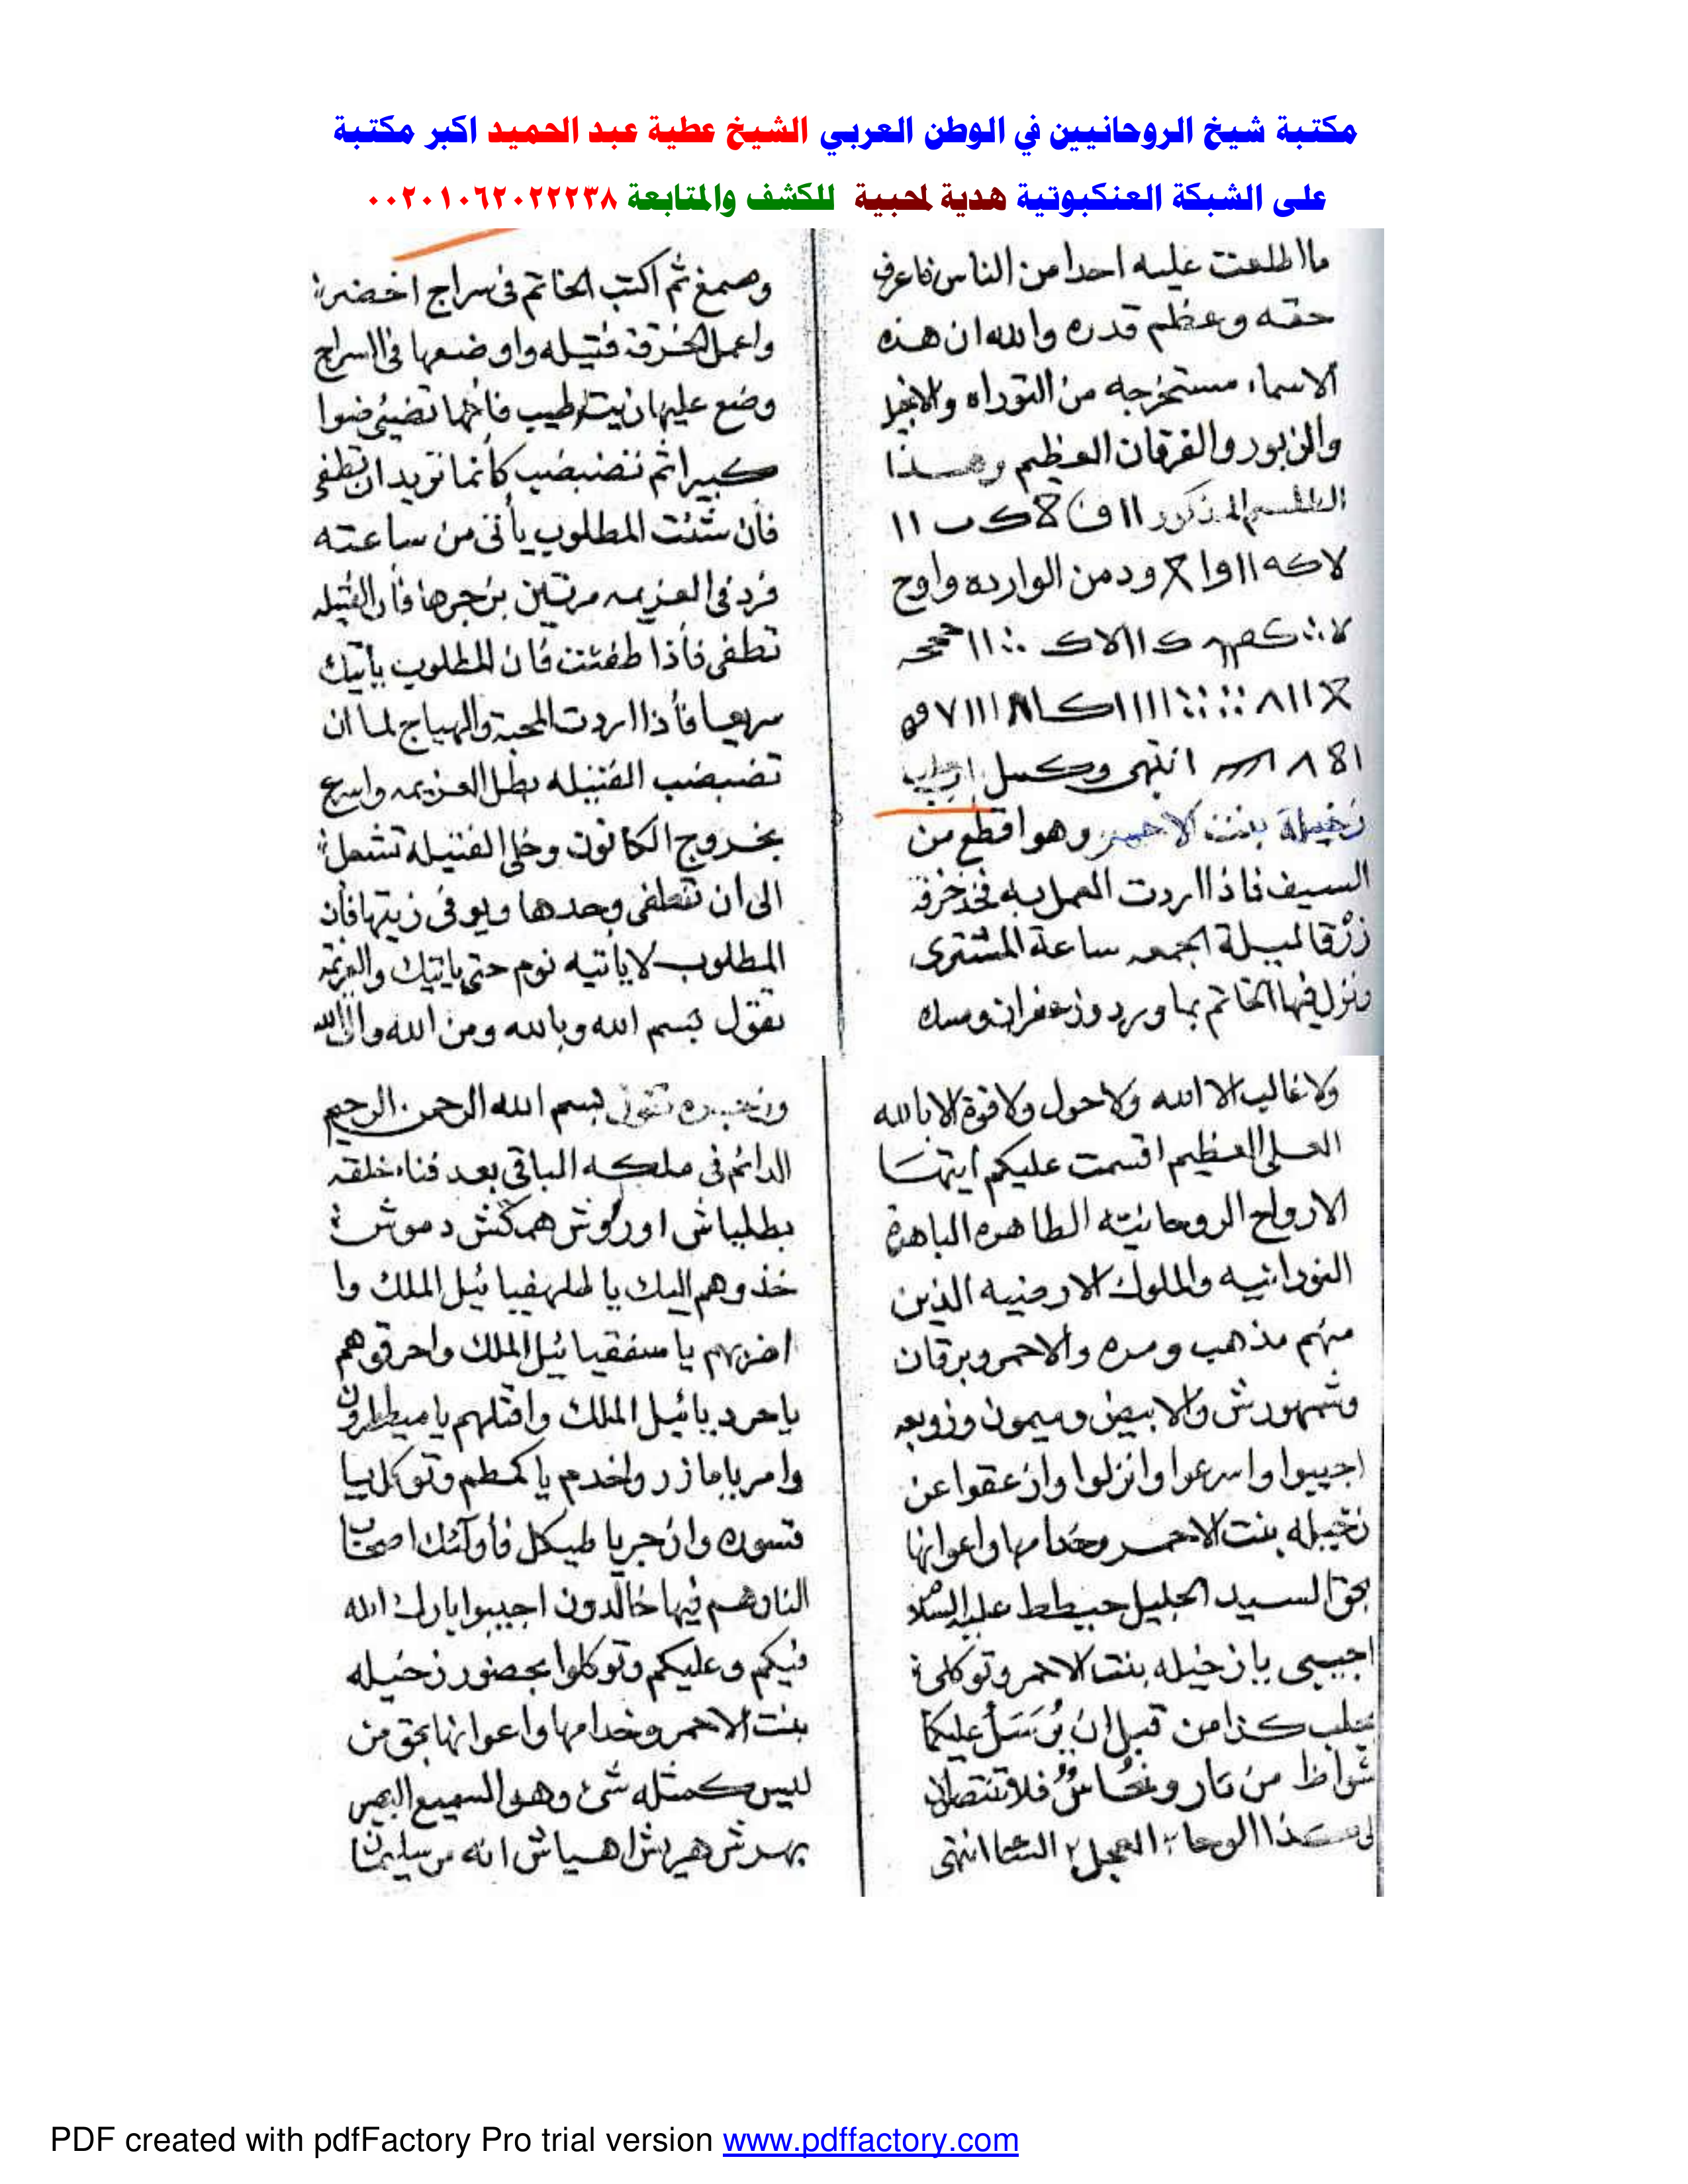 مكتبة شيخ الروحانيين في الوطن العربي الشيخ عطية عبد الحميد اكبر مكتبة
على الشبكة العنكبوتية هدية لمحبية للكشف والمتابعة ٠٠٢٠١٠٦٢٠٢٢٢٣٨
مااطلعت عليه احدا من الناس فاعرف
حقه وعظم قدره والله ان هذه
الاسماء مستخرجه من التوراه والانجيل
والزبور والفرقان العظيم وهذا
الطلسم المذكور
من الوارده
انتهى وكمل
زخيلة بنت الاحمر وهو اقطع من
السيف فاذا اردت العمل به فخذ خرقه
زرقا ليلة الجمعه ساعة المشترى
ونزل فيها الخاتم بماورد وزعفران ومسك
وصمغ ثم اكتب الخاتم فى سراج اخضر
واعمل الخرقة فتيله واوضعها فى السراج
وضع عليها زيت طيب فانها تضيئ ضوا
كبيرا ثم تضبضب كأنما تريد ان تطفى
فان شئت المطلوب يأتى من ساعته
فرد فى العزيمه مرتين بزجرها فان الفتيله
تطفى فأذا طفئت فان المطلوب يأتيك
سريعا فأذا اردت المحبة والهياج لما ان
تضبضب الفتيله بطل العزيمه واسرع
بخروج الكانون وخلى الفتيله تشعل
الى ان تنطفى وحدها ويوفى زيتها فان
المطلوب لا يأتيه نوم حتى ياتيك والعزيمه
تقول بسم الله وبالله ومن الله والى الله
ولا غالب الا الله ولا حول ولا قوة الا بالله
العلى العظيم اقسمت عليكم ايتها
الارواح الروحانيه الطاهره الباهرة
النورانيه والملوك الارضيه الذين
منهم مذهب ومره والاحمر وبرقان
وشمهورش والابيض وميمون وزوبعه
اجيبوا واسرعوا وانزلوا وازعقوا عن
زخيله بنت الاحمر وخدامها واعوانها
بحق السيد الجليل حيطط عليه السلام
اجيبى يا زخيله بنت الاحمر وتوكلى
بجلب كذا من قبل ان يُرسَلُ عليكما
شواظ من نار ونحُاسٌ فلا تنتصران
الوحا ٢ العجل ٢ الساعة انتهى
تقول بسم الله الرحمن الرحيم
الدائم فى ملكه الباقى بعد فناء خلقه
بطلياش اوركوش همكش دموش
خذوهم اليك يا طلهفيائيل الملك وا
اضربهم يا سفقيائيل الملك واحرقوهم
ياحرديائيل الملك واقتلهم يا ميططرون
وامر يا مازر واخدم يا كمطم وتوكل يا
قسوره وازجر يا طيكل فأولئك اصحاب
النار هم فيها خالدون اجيبوا بارك الله
فيكم وعليكم وتوكلوا بحضور زخيله
بنت الاحمر وخدامها واعوانها بحق من
ليس كمثله شئ وهو السميع البصير
بهدش هريش اهياش انه من سليمان
PDF created with pdfFactory Pro trial version www.pdffactory.com